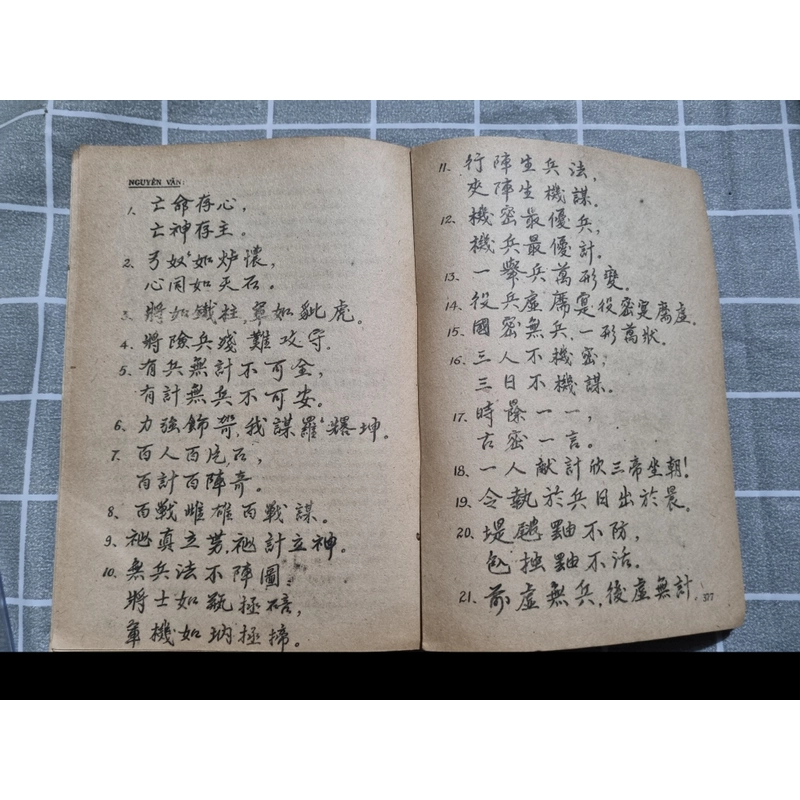 NGUYÊN VĂN:
1. 亡命存心,
亡神存主。
2. 弓奴如炉
心闭如天石。
3. 將如鐵柱,軍如豼虎。
4. 將險兵殘難攻守。
5. 有兵無計不可全,
有計無兵不可安。
6. 力強飾,我謀羅坤。
7. 百人百瓦石,
百計百陣奇。
8. 百戦雌雄百戰謀。
9. 祕真立势,祕計立神。
10. 無兵法不陣圖,
將士如瓿拯碚,
軍機如圽拯掃。
11. 行陣生兵法,
夾陣生機謀。
12. 機密最優兵,
機兵最優計。
13. 一舉兵萬形变。
14. 役兵虛席寔,役密寔席虛。
15. 國密無兵,一形萬狀。
16. 三人不機密,
三日不機謀。
17. 時餘一一,
古密一言。
18. 一人献計欣三帝坐朝!
19. 令執於兵日出於晨。
20. 堤不防,
不活。
21. 前虛無兵,後虛無計.
377